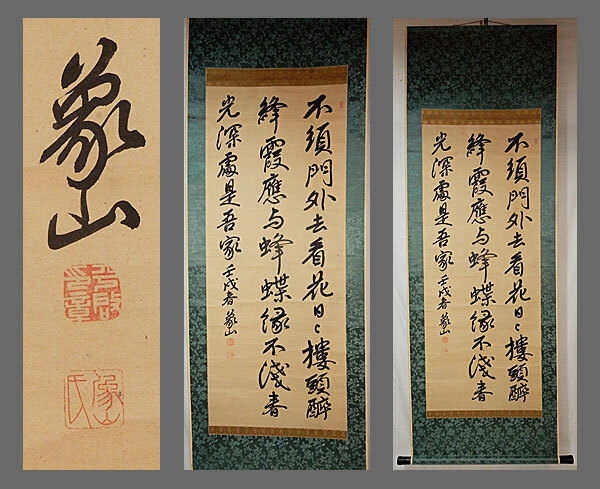 象山
象山氏
不須門外去看花日〻樓頭醉
絳霞應与蜂蝶緣不淺春
光深處是吾家 壬戌春 象山
不須門外去看花日〻樓頭醉
絳霞應与蜂蝶緣不淺春
光深處是吾家 壬戌春 象山